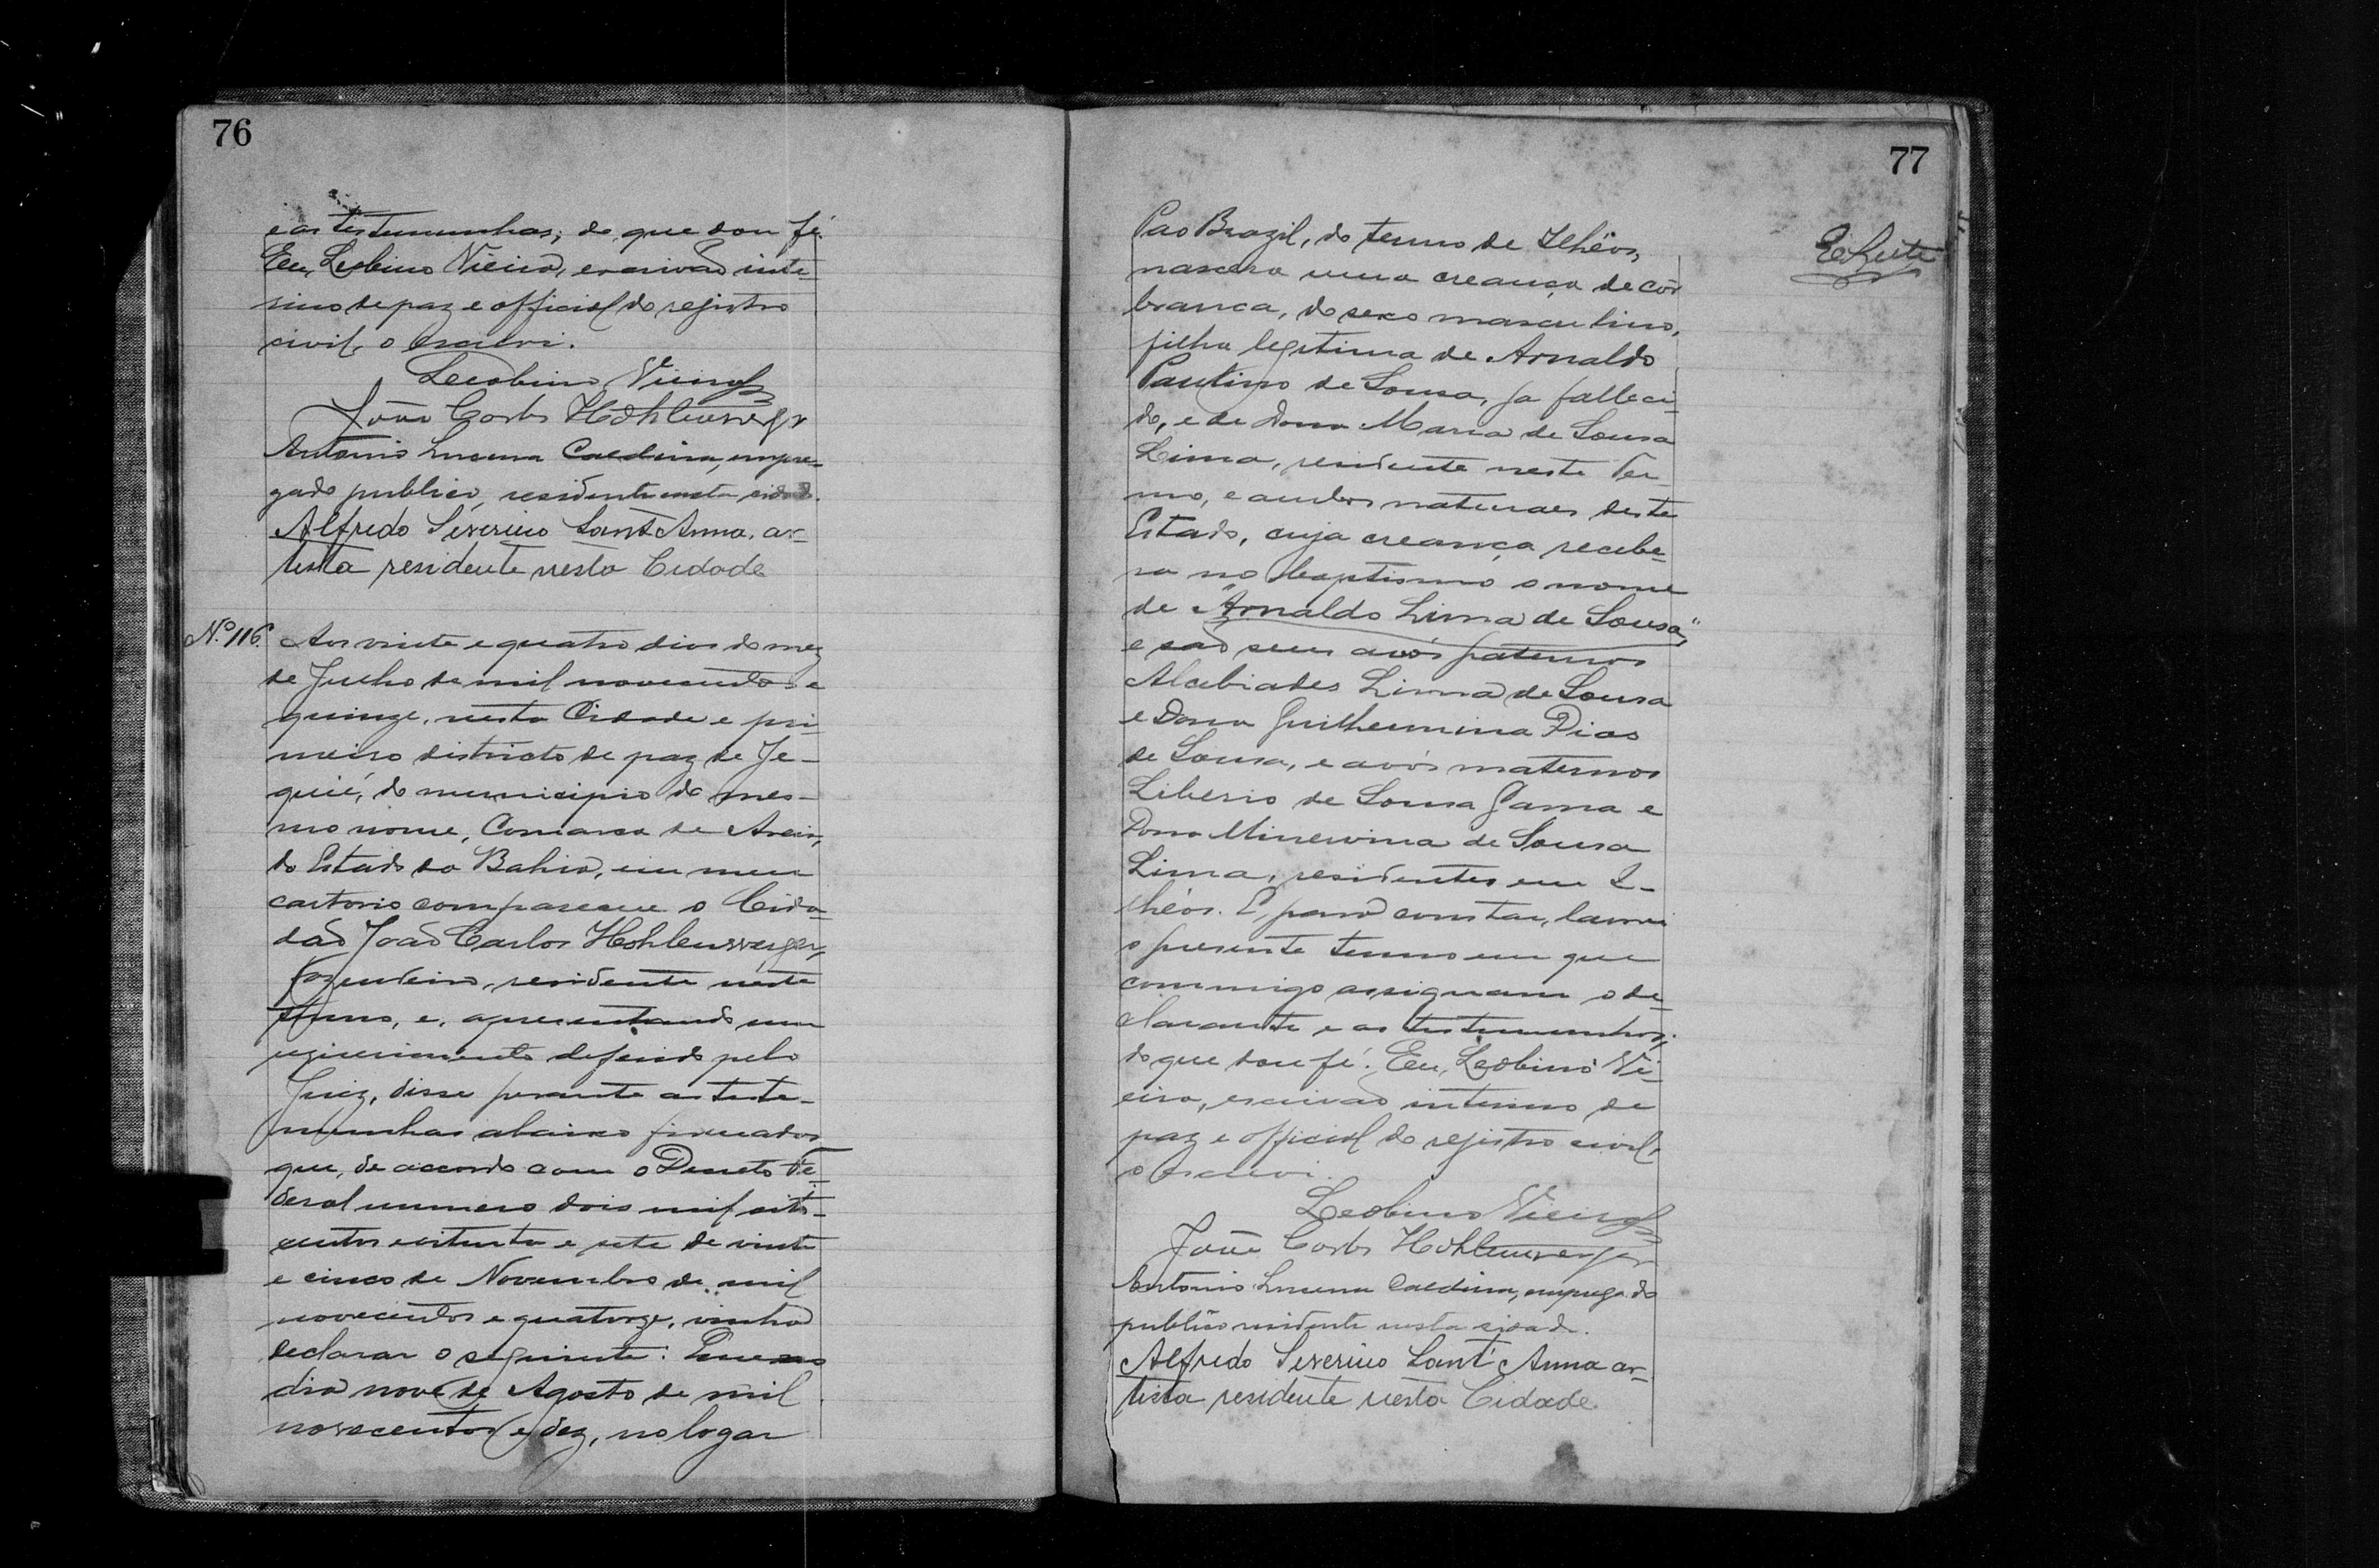 76
e as testemunhas; do que dou fé.
Eu, Leobino Vieira, escrivão inte-
rino de paz e official do registro
civil, o escrevi.
Leobino Vieira
João Carlos Hohlenwerger
Antonio Lucena Caldeira, empre-
gado publico, residente nesta cidade.
Alfredo Severino Sant'Anna, ar-
tista residente nesta Cidade
Nº 116. Aos vinte e quatro dias do mez
de Julho de mil novecentos e
quinze, nesta Cidade e pri-
meiro districto de paz de Je-
quié, do municipio do mes-
mo nome, Comarca de Areia,
do Estado da Bahia, em meu
cartorio compareceu o Cida-
dão João Carlos Hohlenwerger,
fazendeiro, residente neste
termo, e, apresentando um
requerimento deferido pelo
Juiz, disse perante as teste-
munhas abaixo firmadas
que, de accordo com o Decreto Fe-
deral numero dois mil oito-
centos e oitenta e sete de vinte
e cinco de Novembro de mil
novecentos e quatorze, vinha
declarar o seguinte: Que no
dia nove de Agosto de mil
novecentos e dez, no logar
77
Páo Brazil, do termo de Ilhéos,
nascera uma creança de côr
branca, do sexo masculino,
filha legitima de Arnaldo
Paulino de Sousa, ja falleci-
do, e de Dona Maria de Sousa
Lima, residente neste Ter-
mo, e ambos naturaes deste
Estado, cuja creança recebe-
ra no baptismo o nome
de "Arnaldo Lima de Sousa",
e são seus avós paternos
Alcebiades Lima de Sousa
e Dona Guilhermina Dias
de Sousa, e avós maternos
Liberio de Sousa Gama e
Dona Minervina de Sousa
Lima, residentes em I-
lhéos. E, para constar, lavrei
o presente termo em que
commigo assignam o de-
clarante e as testemunhas;
do que dou fé. Eu, Leobino Vi-
eira, escrivão interino de
paz e official do registro civil,
o escrevi.
Leobino Vieira
João Carlos Hohlenwerger
Antonio Lucena Caldeira, empregado
publico residente nesta cidade.
Alfredo Severino Sant'Anna ar-
tista residente nesta Cidade